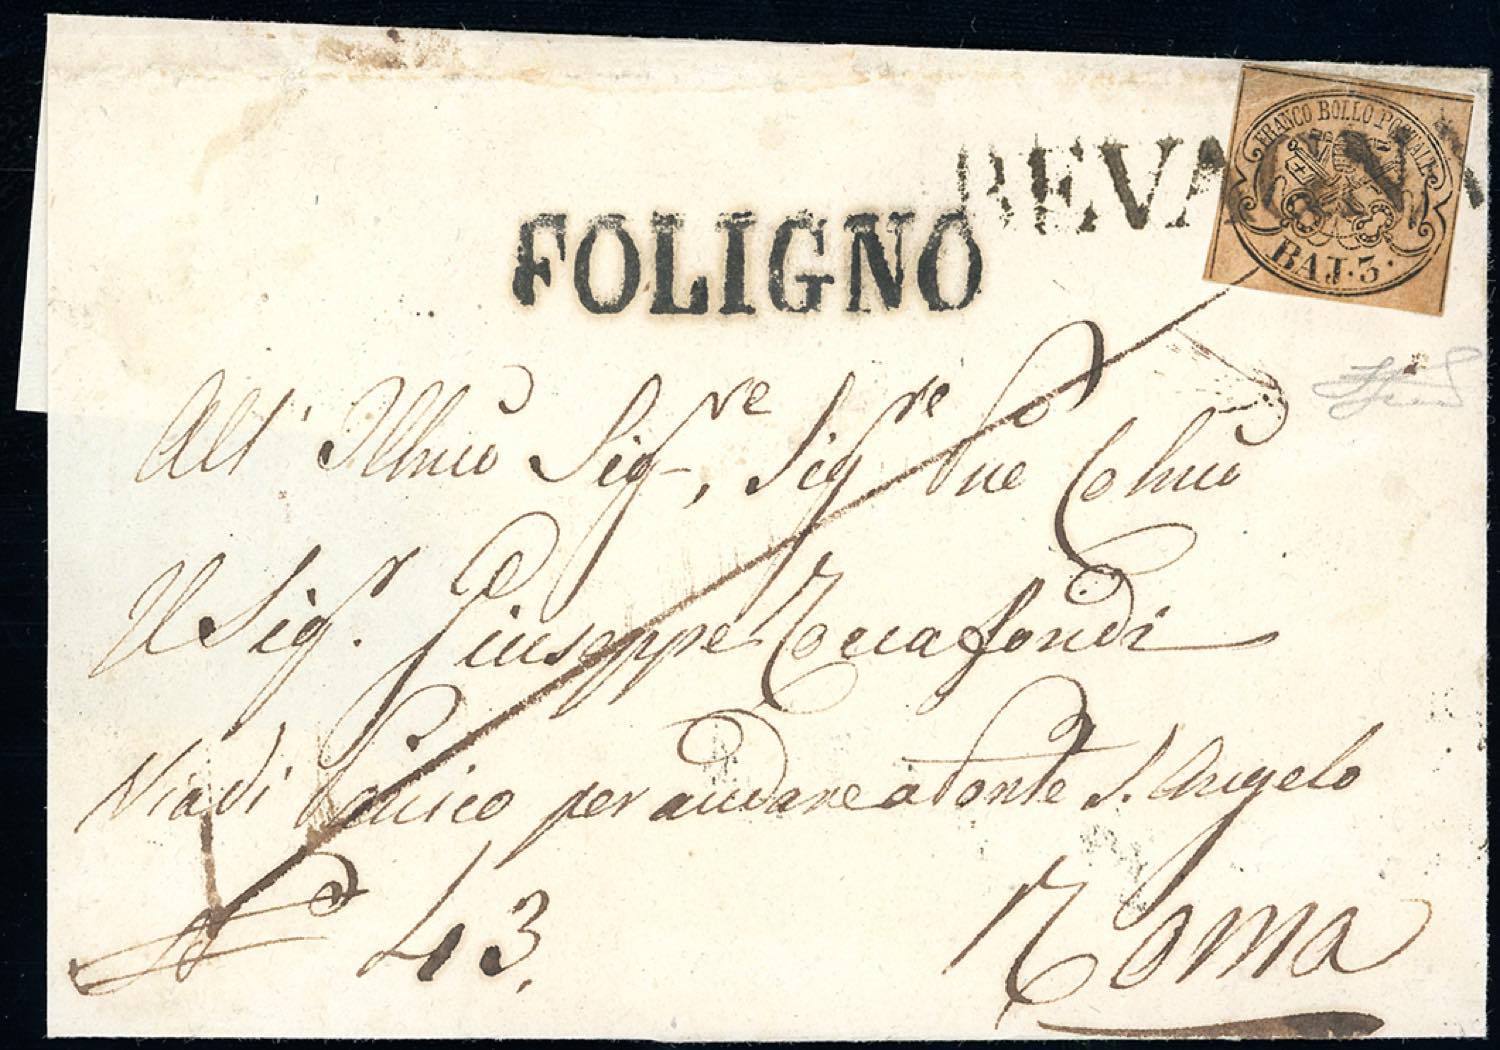 FRANCO BOLLO POSTALE
BAJ. 3.
BEVAGNA
FOLIGNO
All' Illmo Sig.re, Sig.re Pne Colmo
Il Sig.r Giuseppe Roccafondi
Via di Panico per andare a Ponte S. Angelo
43.
Roma